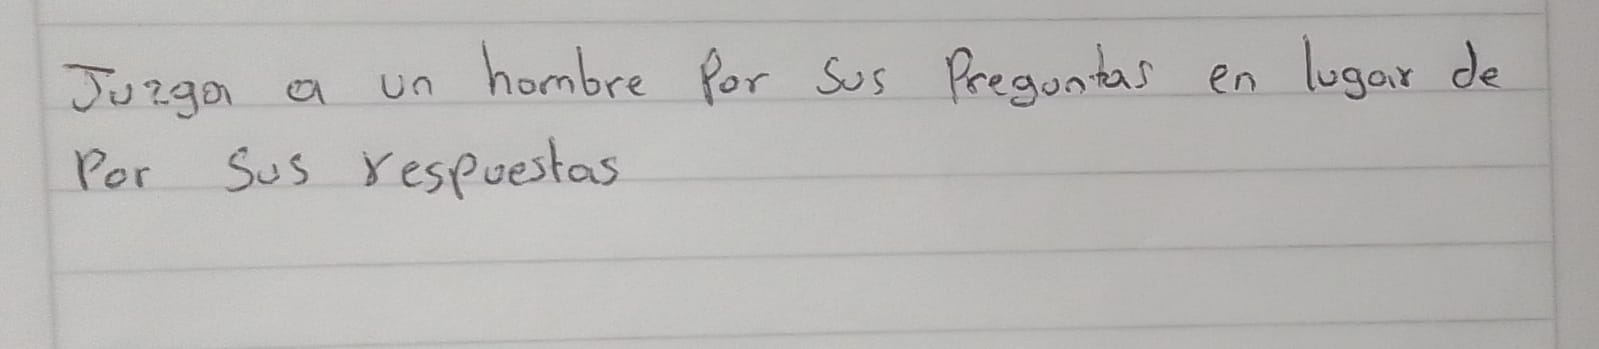 Juzga a un hombre Por Sus Preguntas en lugar de
Por Sus respuestas